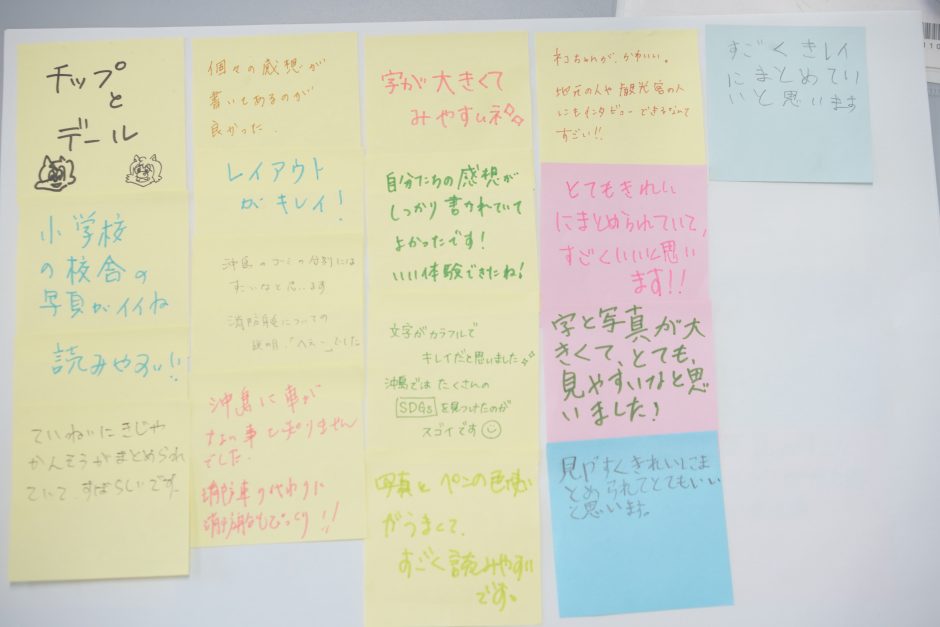 チップ
と
デール
小学校
の校舎の
写真がイイね
読みやすい!!
ていねいにきじや
かんそうがまとめられ
ていて、すばらしいです。
個々の感想が
書いてあるのが
良かった。
レイアウト
がキレイ!
沖島のゴミの分別には
すごいなと思います
消防艇についての
説明が「へえー」とした
沖島に車が
ない事しっ
でした。
消防車の代わりに
消防船もびっくり!!
字が大きくて
みやすいネ
自分たちの感想が
しっかり書かれていて
よかったです!
いい体験できたね!
文字がカラフルで
キレイだと思いました
沖島ではたくさんの
SDGsを見つけたのが
スゴイです
写真とペンの色使い
がうまくて、
すごく読みやすい
です。
ネコちゃんが、かわいい。
地元の人や観光客の人
にもインタビューできるなんて
すごい!!
とてもきれい
にまとめられていて、
すごくいいと思い
ます!!
字と写真が大
きくて、とても、
見やすいなと思
いました!
見やすくきれいにま
とめられてとてもいい
と思います。
すごくキレイ
にまとめてい
いと思います
110